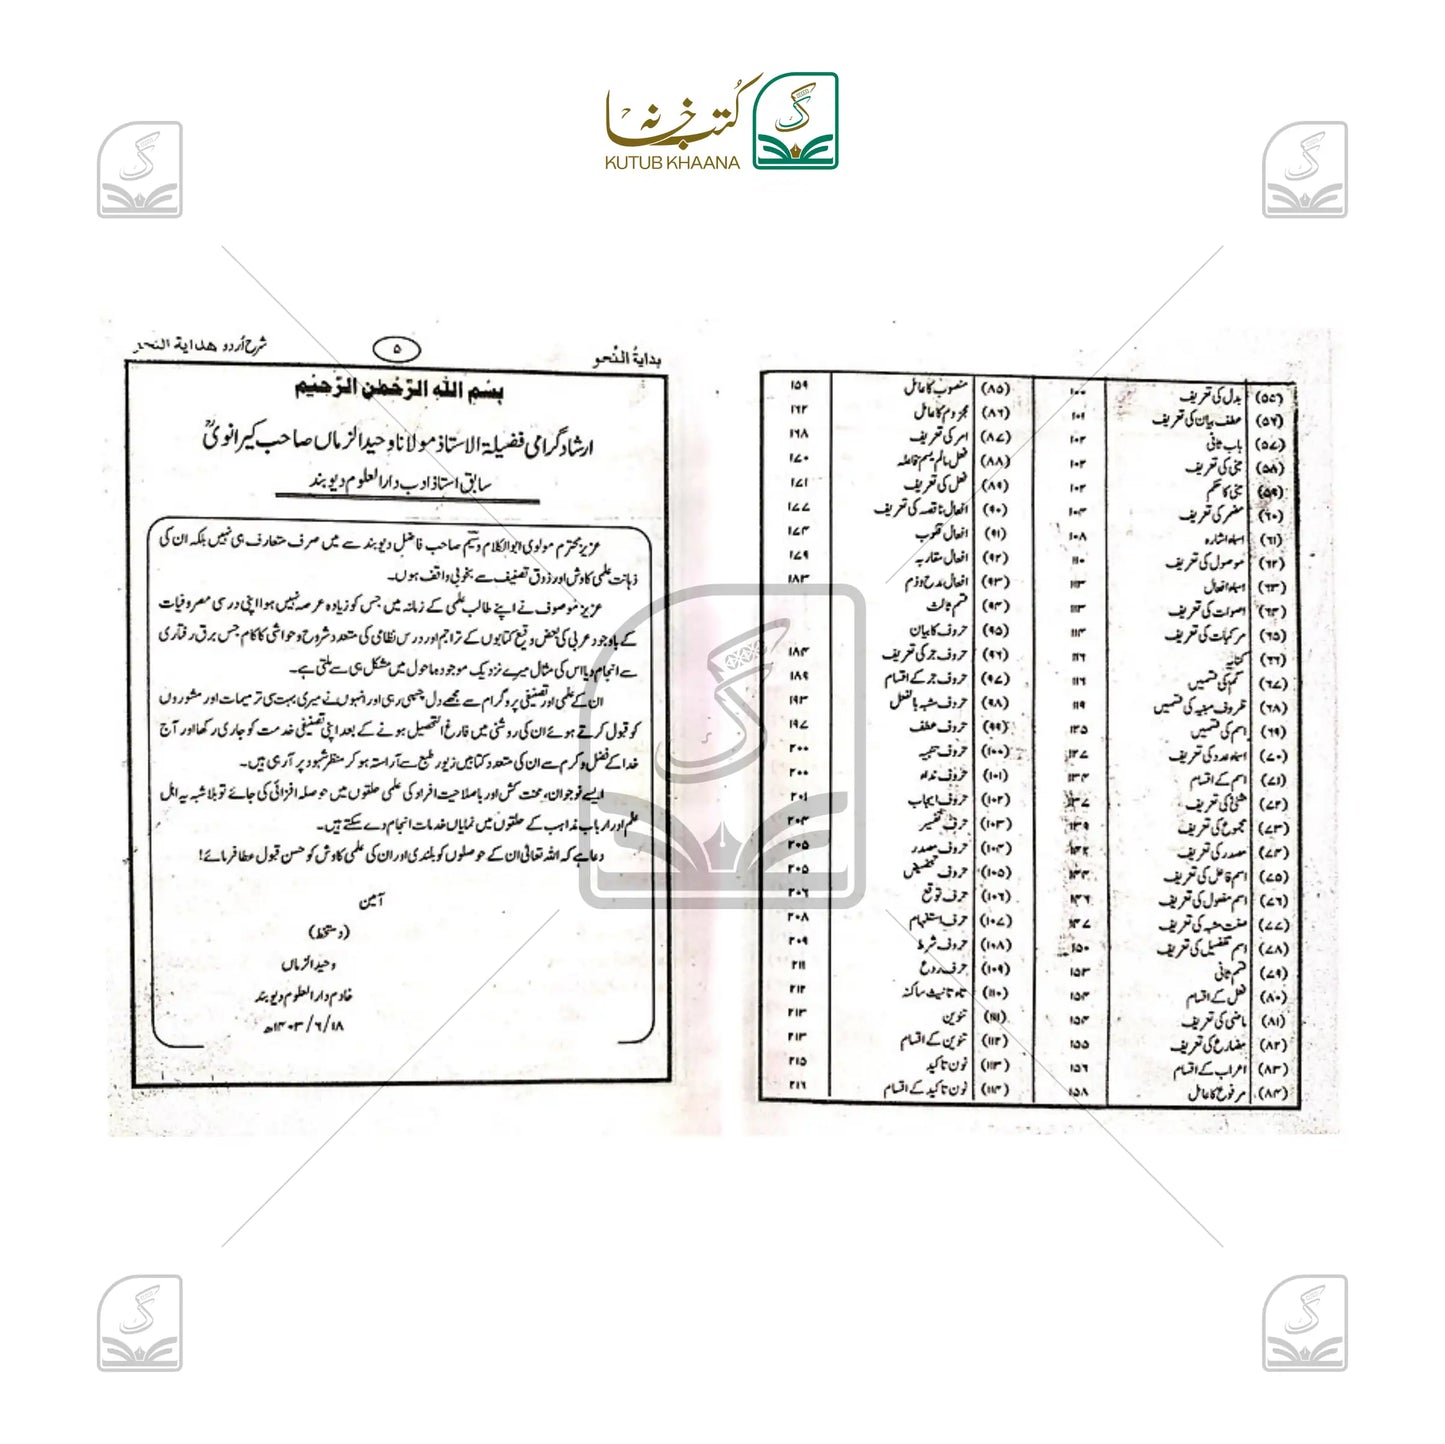 کُتب خانہ
KUTUB KHAANA
(۵۵) بدل کی تعریف ۱۰۰
(۵۶) عطف بیان کی تعریف ۱۰۱
(۵۷) باب ثانی ۱۰۲
(۵۸) مبنی کی تعریف ۱۰۲
(۵۹) مبنی کا حکم ۱۰۲
(۶۰) مضمر کی تعریف ۱۰۴
(۶۱) اسماء اشارہ ۱۰۸
(۶۲) موصول کی تعریف ۱۱۰
(۶۳) اسماء افعال ۱۱۳
(۶۴) اصوات کی تعریف ۱۱۳
(۶۵) مرکبات کی تعریف ۱۱۴
(۶۶) کنایہ ۱۱۶
(۶۷) کم کی قسمیں ۱۱۶
(۶۸) ظروف مبنیہ کی قسمیں ۱۱۹
(۶۹) اسم کی قسمیں ۱۲۵
(۷۰) اسماء عدد کی تعریف ۱۲۷
(۷۱) اسم کے اقسام ۱۳۴
(۷۲) مثنیٰ کی تعریف ۱۳۷
(۷۳) مجموع کی تعریف ۱۳۹
(۷۴) مصدر کی تعریف ۱۴۲
(۷۵) اسم فاعل کی تعریف ۱۴۴
(۷۶) اسم مفعول کی تعریف ۱۴۶
(۷۷) صفت مشبہ کی تعریف ۱۴۷
(۷۸) اسم تفضیل کی تعریف ۱۵۰
(۷۹) قسم ثانی ۱۵۳
(۸۰) فعل کے اقسام ۱۵۴
(۸۱) ماضی کی تعریف ۱۵۴
(۸۲) مضارع کی تعریف ۱۵۵
(۸۳) اعراب کے اقسام ۱۵۶
(۸۴) مرفوع کا عامل ۱۵۸
(۸۵) منصوب کا عامل ۱۵۹
(۸۶) مجزوم کا عامل ۱۶۲
(۸۷) امر کی تعریف ۱۶۸
(۸۸) فعل مالم یسم فاعلہ ۱۷۰
(۸۹) فعل کی تعریف ۱۷۱
(۹۰) افعال ناقصہ کی تعریف ۱۷۷
(۹۱) افعال قلوب ۱۷۴
(۹۲) افعال مقاربہ ۱۷۹
(۹۳) افعال مدح و ذم ۱۸۳
(۹۴) قسم ثالث
(۹۵) حروف کا بیان
(۹۶) حروف جر کی تعریف ۱۸۴
(۹۷) حروف جر کے اقسام ۱۸۹
(۹۸) حروف مشبہ بالفعل ۱۹۳
(۹۹) حروف عطف ۱۹۷
(۱۰۰) حروف تنبیہ ۲۰۰
(۱۰۱) حروف نداء ۲۰۰
(۱۰۲) حروف ایجاب ۲۰۱
(۱۰۳) حرف تفسیر ۲۰۴
(۱۰۴) حروف مصدر ۲۰۵
(۱۰۵) حروف تحضیض ۲۰۵
(۱۰۶) حرف توقع ۲۰۶
(۱۰۷) حرف استفہام ۲۰۸
(۱۰۸) حروف شرط ۲۰۹
(۱۰۹) حرف ردع ۲۱۱
(۱۱۰) تاء تانیث ساکنہ ۲۱۲
(۱۱۱) تنوین ۲۱۳
(۱۱۲) تنوین کے اقسام ۲۱۳
(۱۱۳) نون تاکید ۲۱۵
(۱۱۴) نون تاکید کے اقسام ۲۱۶
بدایۃُ النّحو ۵ شرح اُردو ھدایۃ النحو
بسم اللہ الرّحمٰن الرّحیم
ارشاد گرامی فضیلۃ الاستاذ مولانا وحید الزماں صاحب کیرانویؒ
سابق استاذ ادب دارالعلوم دیوبند
عزیز محترم مولوی ابوالکلام وسیم صاحب فاضل دیوبند سے میں صرف متعارف ہی نہیں بلکہ ان کی
ذہانت علمی کاوش اور ذوق تصنیف سے بخوبی واقف ہوں۔
عزیز موصوف نے اپنے طالب علمی کے زمانہ میں جس کو زیادہ عرصہ نہیں ہوا اپنی درسی مصروفیات
کے باوجود عربی کی بعض وقیع کتابوں کے تراجم اور درس نظامی کی متعدد شروح و حواشی کا کام جس برق رفتاری
سے انجام دیا اس کی مثال میرے نزدیک موجودہ ماحول میں مشکل ہی سے ملتی ہے۔
ان کے علمی اور تصنیفی پروگرام سے مجھے دل چسپی رہی اور انہوں نے میری بہت سی ترمیمات اور مشوروں
کو قبول کرتے ہوئے ان کی روشنی میں فارغ التحصیل ہونے کے بعد اپنی تصنیفی خدمت کو جاری رکھا اور آج
خدا کے فضل و کرم سے ان کی متعدد کتابیں زیور طبع سے آراستہ ہو کر منظر شہود پر آرہی ہیں۔
ایسے نوجوان، محنت کش اور باصلاحیت افراد کی علمی حلقوں میں حوصلہ افزائی کی جائے تو بلاشبہ یہ اہل
علم اور ارباب مذاہب کے حلقوں میں نمایاں خدمات انجام دے سکتے ہیں۔
دعا ہے کہ اللہ تعالیٰ ان کے حوصلوں کو بلندی اور ان کی علمی کاوش کو حسن قبول عطا فرمائے!
آمین
(دستخط)
وحید الزماں
خادم دارالعلوم دیوبند
۱۸/۶/۱۴۰۳ھ